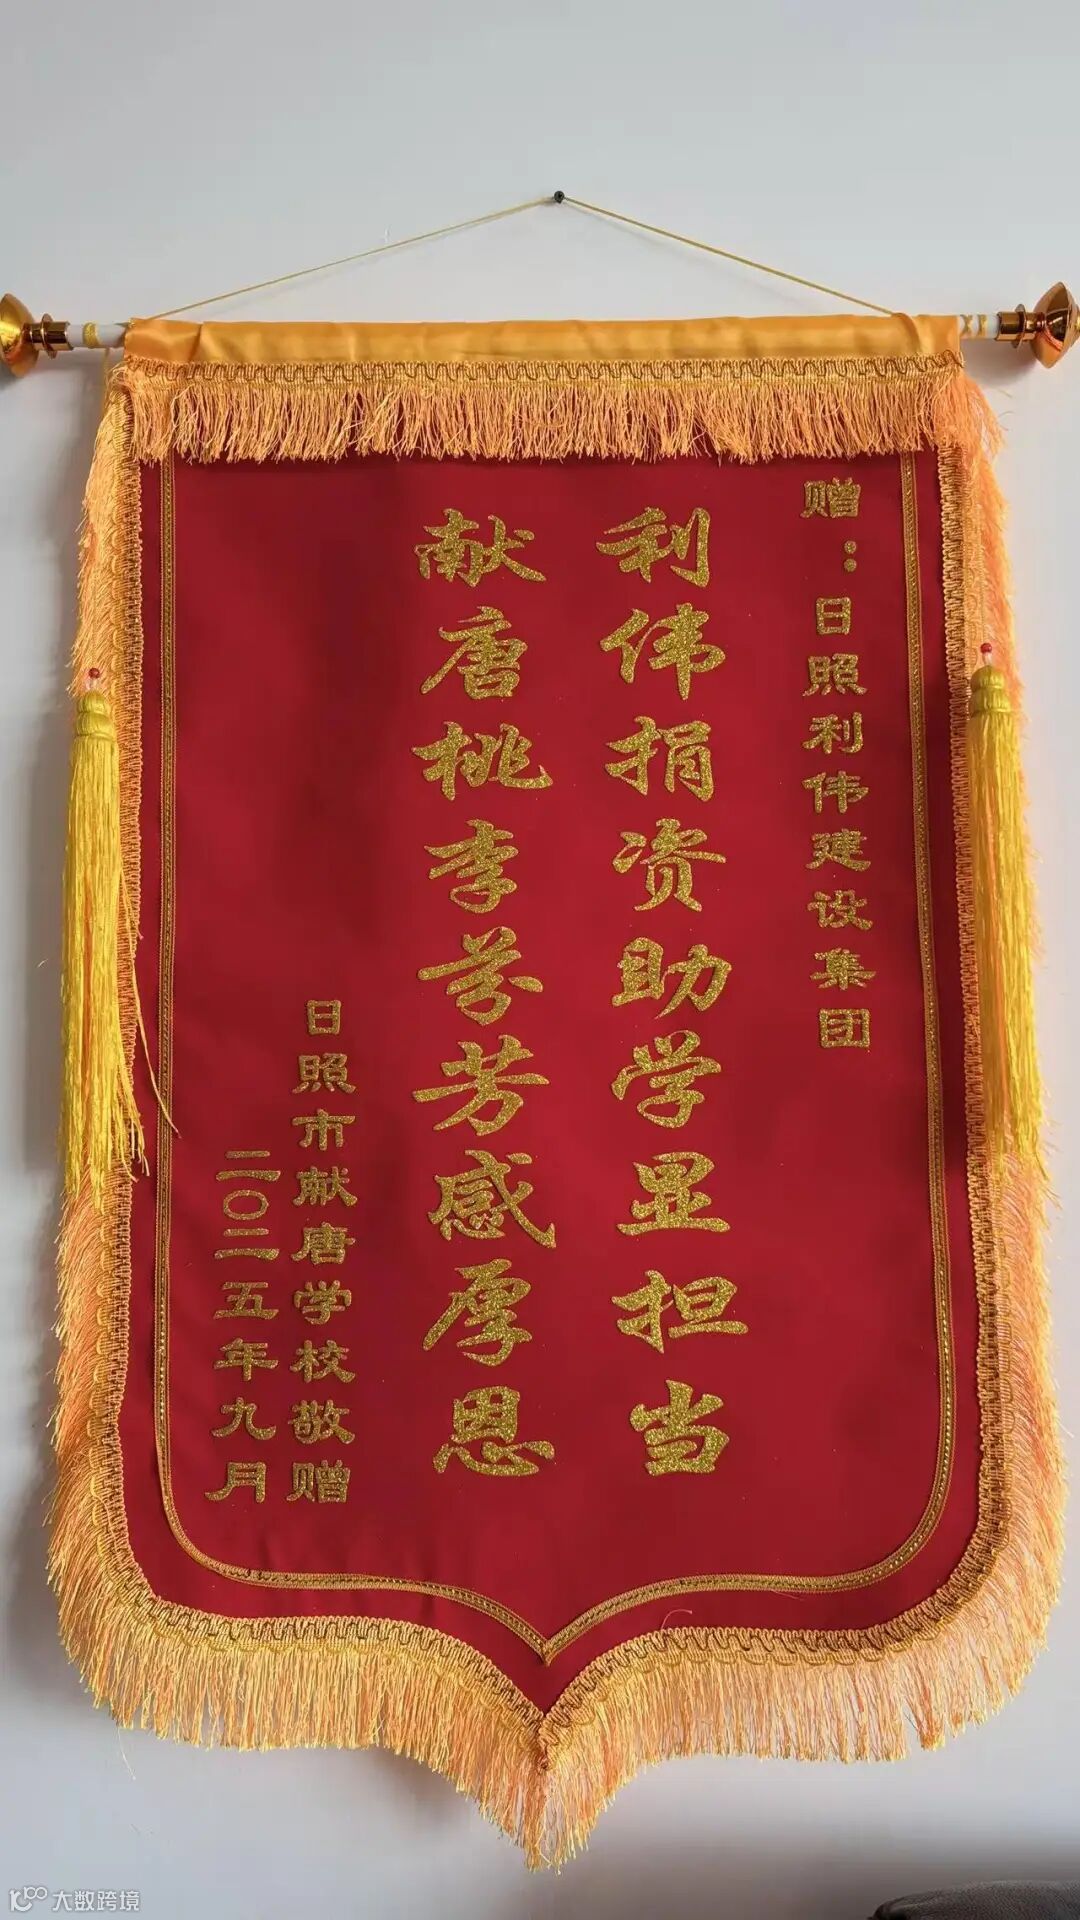 赠：日照利伟建设集团
利伟捐资助学显担当
献唐桃李芬芳感厚恩
日照市献唐学校敬赠
二〇二五年九月
大数跨境